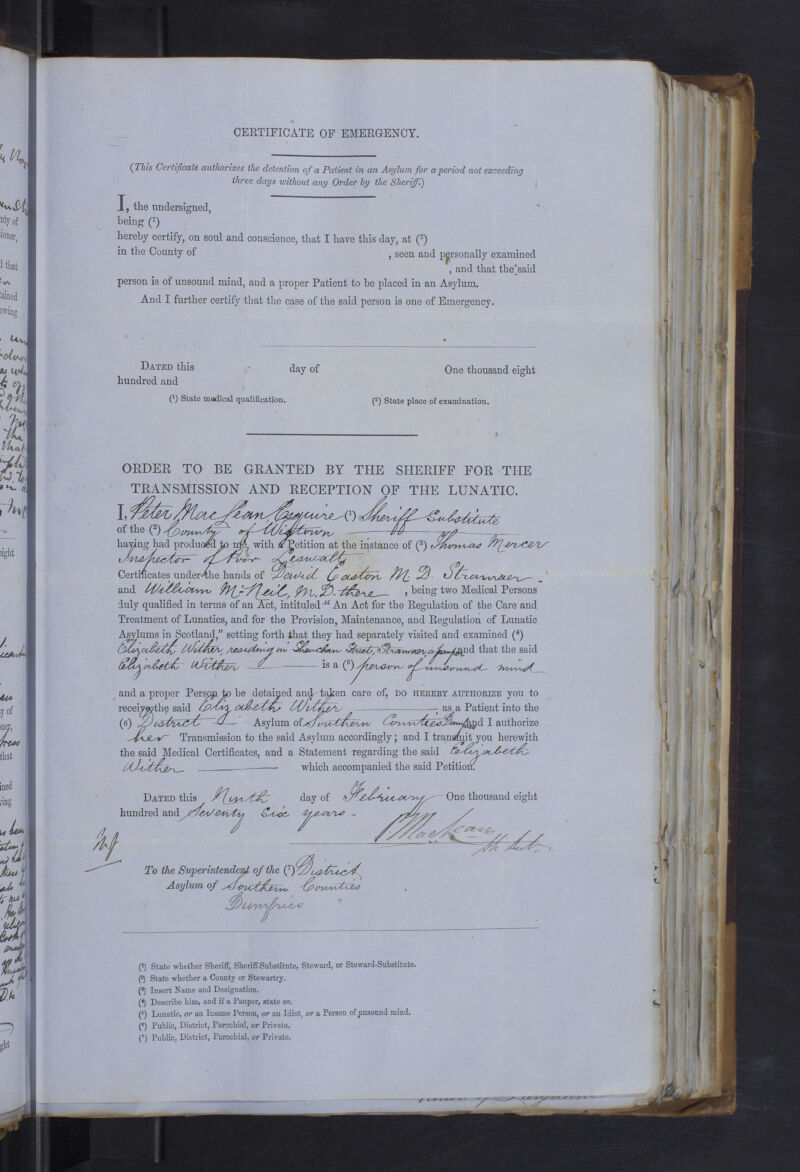 CERTIFICATE OF EMERGENCY.
(This Certificate authorizes the detention of a Patient in an Asylum for a period not exceeding
three days without any Order by the Sheriff.)
I, the undersigned,
being (1)
hereby certify, on soul and conscience, that I have this day, at (2)
in the County of , seen and personally examined
, and that the said
person is of unsound mind, and a proper Patient to be placed in an Asylum.
And I further certify that the case of the said person is one of Emergency.
DATED this day of One thousand eight
hundred and
(1) State medical qualification. (2) State place of examination.
ORDER TO BE GRANTED BY THE SHERIFF FOR THE
TRANSMISSION AND RECEPTION OF THE LUNATIC.
I, Peter MacLean Esquire (1) Sheriff Substitute
of the (2) County of Wigtown
having had produced to me, with a Petition at the instance of (3) Thomas Mercer
Inspector of Poor Leswalt
Certificates under the hands of David Easton M.D. Stranraer
and William McNeil, M.D. there , being two Medical Persons
duly qualified in terms of an Act, intituled "An Act for the Regulation of the Care and
Treatment of Lunatics, and for the Provision, Maintenance, and Regulation of Lunatic
Asylums in Scotland," setting forth that they had separately visited and examined (4)
Elizabeth Wither, residing in Sheuchan Street, Stranraer, a pauper and that the said
Elizabeth Wither is a (5) person of unsound mind
and a proper Person to be detained and taken care of, DO HEREBY AUTHORIZE you to
receive the said Elizabeth Wither , as a Patient into the
(6) District Asylum of Southern Counties Dumfries and I authorize
her Transmission to the said Asylum accordingly; and I transmit you herewith
the said Medical Certificates, and a Statement regarding the said Elizabeth
Wither which accompanied the said Petition.
DATED this Ninth day of February One thousand eight
hundred and Seventy Six years -
P MacLean
Sh Subt.
To the Superintendent of the (7) District
Asylum of Southern Counties
Dumfries
(1) State whether Sheriff, Sheriff-Substitute, Steward, or Steward-Substitute.
(2) State whether a County or Stewartry.
(3) Insert Name and Designation.
(4) Describe him, and if a Pauper, state so.
(5) Lunatic, or an Insane Person, or an Idiot, or a Person of unsound mind.
(6) Public, District, Parochial, or Private.
(7) Public, District, Parochial, or Private.